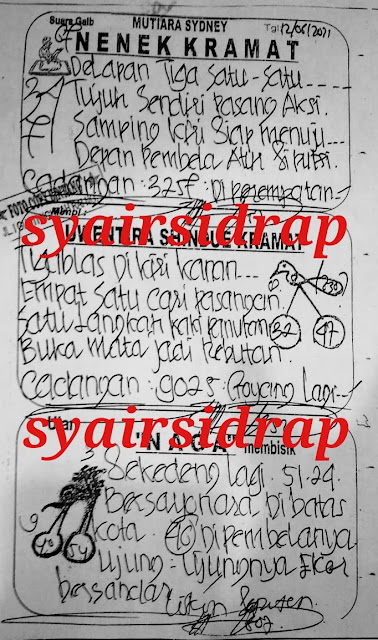 Suara Gaib MUTIARA SYDNEY Tgl 12/06/2021
NENEK KRAMAT
Delapan Tiga Satu-Satu
Tujuh Sendiri Pasang Aksi.
Samping Kiri Siap Menuju
Depan Pembela Atik Siputri.
Cadangan: 325 : Di Penempatan
Mimpi:
syairsidrap
KRAMAT
Tigablas Dikiri Kanan
Empat Satu Cari Pasangan.
Satu Langkah Kaki Panutan
32 47
Buka Mata Jadi Rebutan.
Cadangan: 9025: Goyang Lagi
syairsidrap
"NAGA" membisik
Sekedeng Lagi. 51-24.
Bersaynasa Di batas
Kota. 46 Dipembelanya
Ujung-Ujungnya Ekor
bersandar